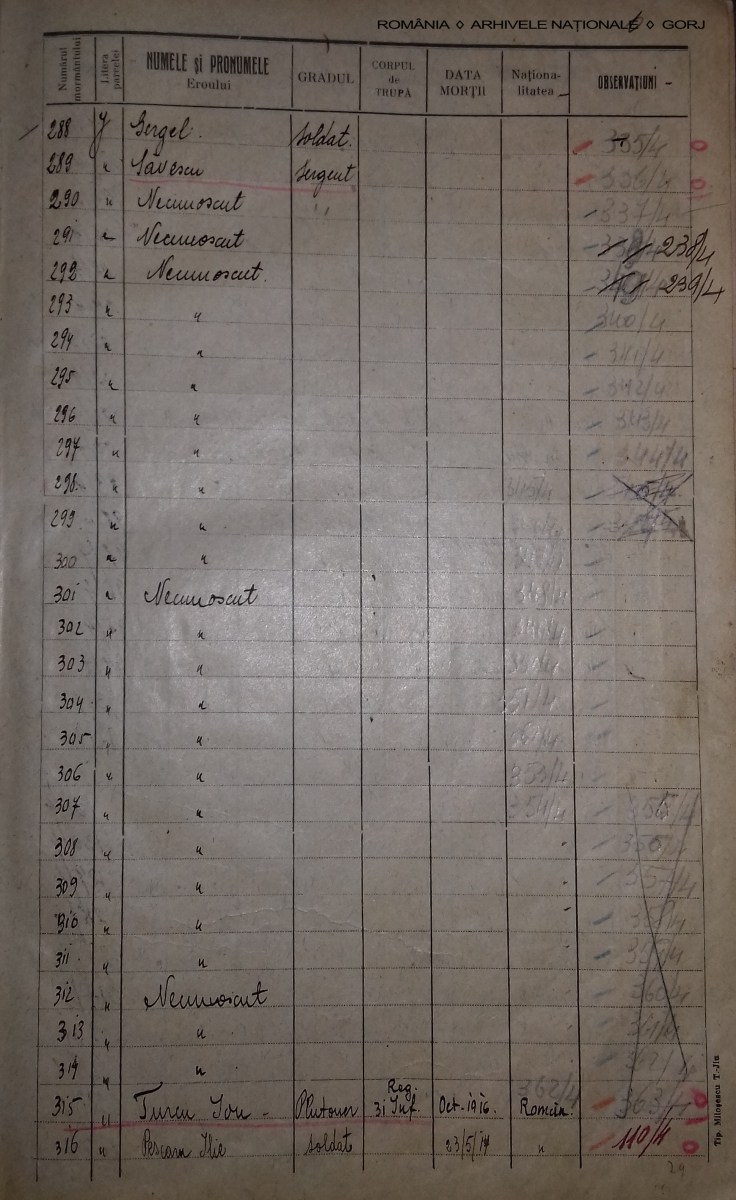 ROMÂNIA ◊ ARHIVELE NAȚIONALE ◊ GORJ
Numărul mormântului Litera parcelei NUMELE și PRONUMELE Eroului GRADUL CORPUL de TRUPĂ DATA MORȚII Naționalitatea OBSERVAȚIUNI
288 Gergel. soldat. 335/4 0
289 " Săvescu sergent 336/4 0
290 " Necunoscut " 337/4
291 " Necunoscut 238/4
292 " Necunoscut. 239/4
293 " " 340/4
294 " " 341/4
295 " " 342/4
296 " " 343/4
297 " " 344/4
298 " " 345/4
299 " "
300 " "
301 " Necunoscut
302 " "
303 " "
304 " " 351/4
305 " "
306 " " 353/4
307 " " 354/4 355/4
308 " "
309 " "
310 " "
311 " "
312 " Necunoscut
313 " "
314 " "
315 " Turcu Ion - Plutoner Reg. 31 Inf. Oct. 1916. Român. 362/4 363/4 0
316 " Pescaru Ilie soldat 23/5/17 " 110/4 0
Tip. Miloșescu T.-Jiu